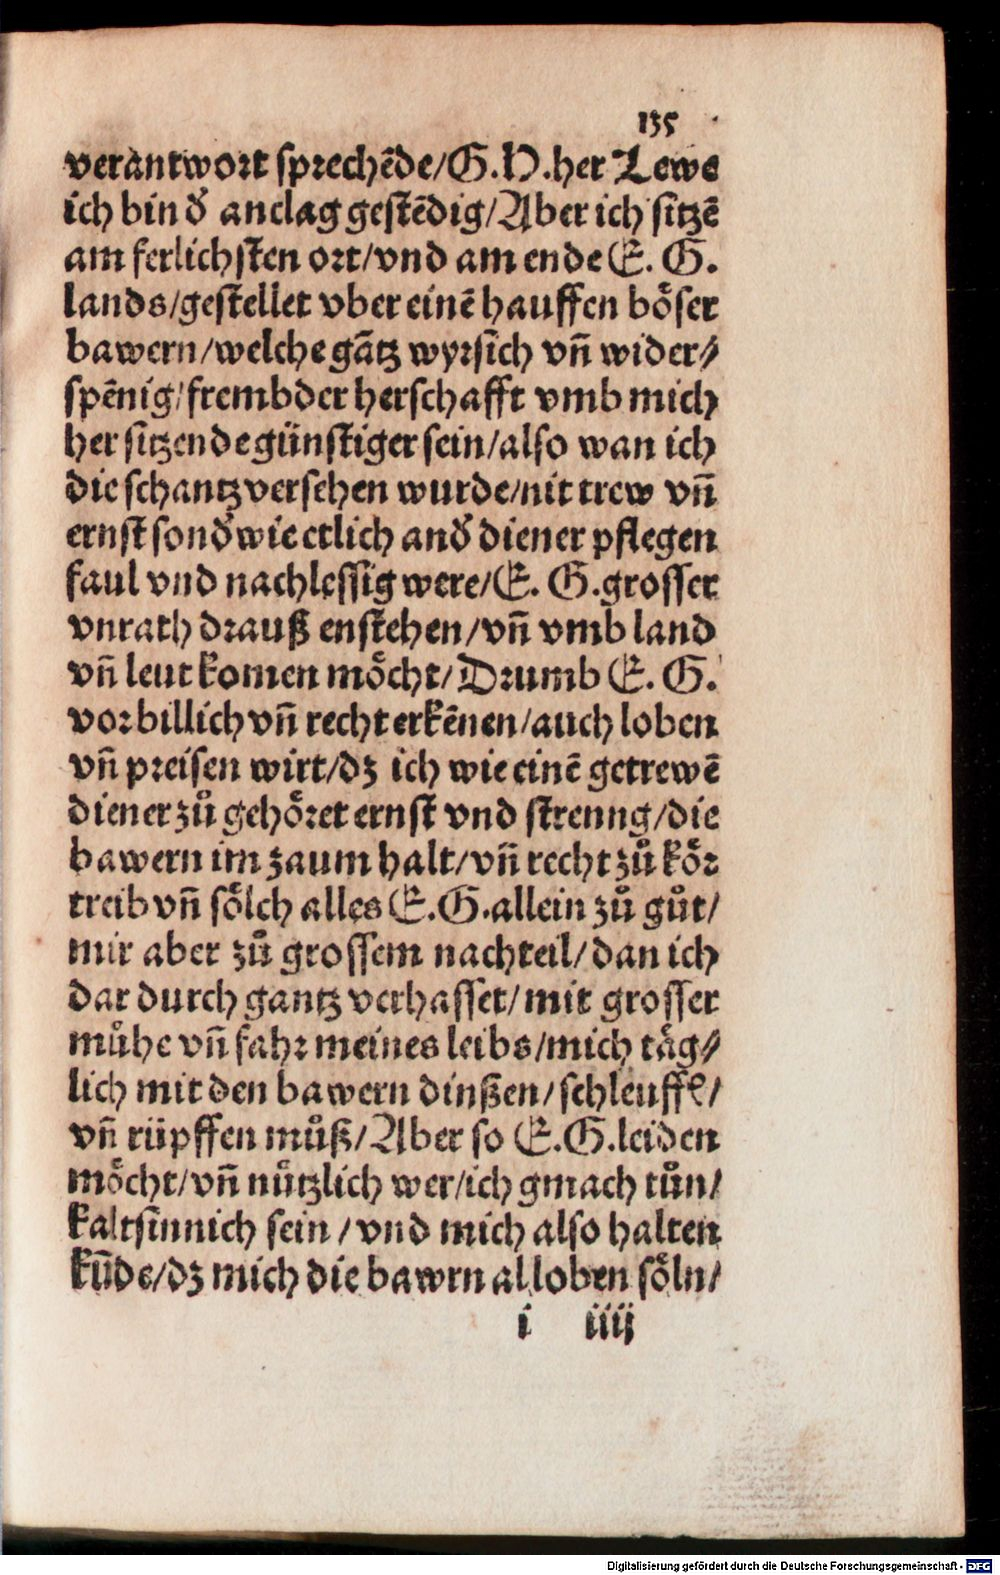 135
verantwort sprechēde/G.H.her Lewe
ich bin dˀ anclag gestēdig/Aber ich sitzē
am ferlichsten ort/vnd am ende E. G.
lands/gestellet vber einē hauffen böser
bawern/welche gātz wyrsich vn̄ wider⸗
spēnig/frembder herschafft vmb mich
her sitzende günstiger sein/also wan ich
die schantz versehen wurde/nit trew vn̄
ernst sondˀ wie etlich andˀ diener pflegen
faul vnd nachlessig were/E. G.grosser
vnrath drauß enstehen/vn̄ vmb land
vn̄ leut komen möcht/Drumb E. G.
vor billich vn̄ recht erkēnen/auch loben
vn̄ preisen wirt/dz ich wie einē getrewē
diener zů gehöret ernst vnd strenng/die
bawern im zaum halt/vn̄ recht zů kör
treib vn̄ sölch alles E.G.allein zů gůt/
mir aber zů grossem nachteil/dan ich
dar durch gantz verhasset/mit grosser
můhe vn̄ fahr meines leibs/mich täg⸗
lich mit den bawern dinßen/schleuffē/
vn̄ rüpffen můß/Aber so E.G.leiden
möcht/vn̄ nützlich wer/ich gmach tůn/
kaltsinnich sein /vnd mich also halten
kūde/dz mich die bawrn al loben söln/
i iiij
Digitalisierung gefördert durch die Deutsche Forschungsgemeinschaft - DFG